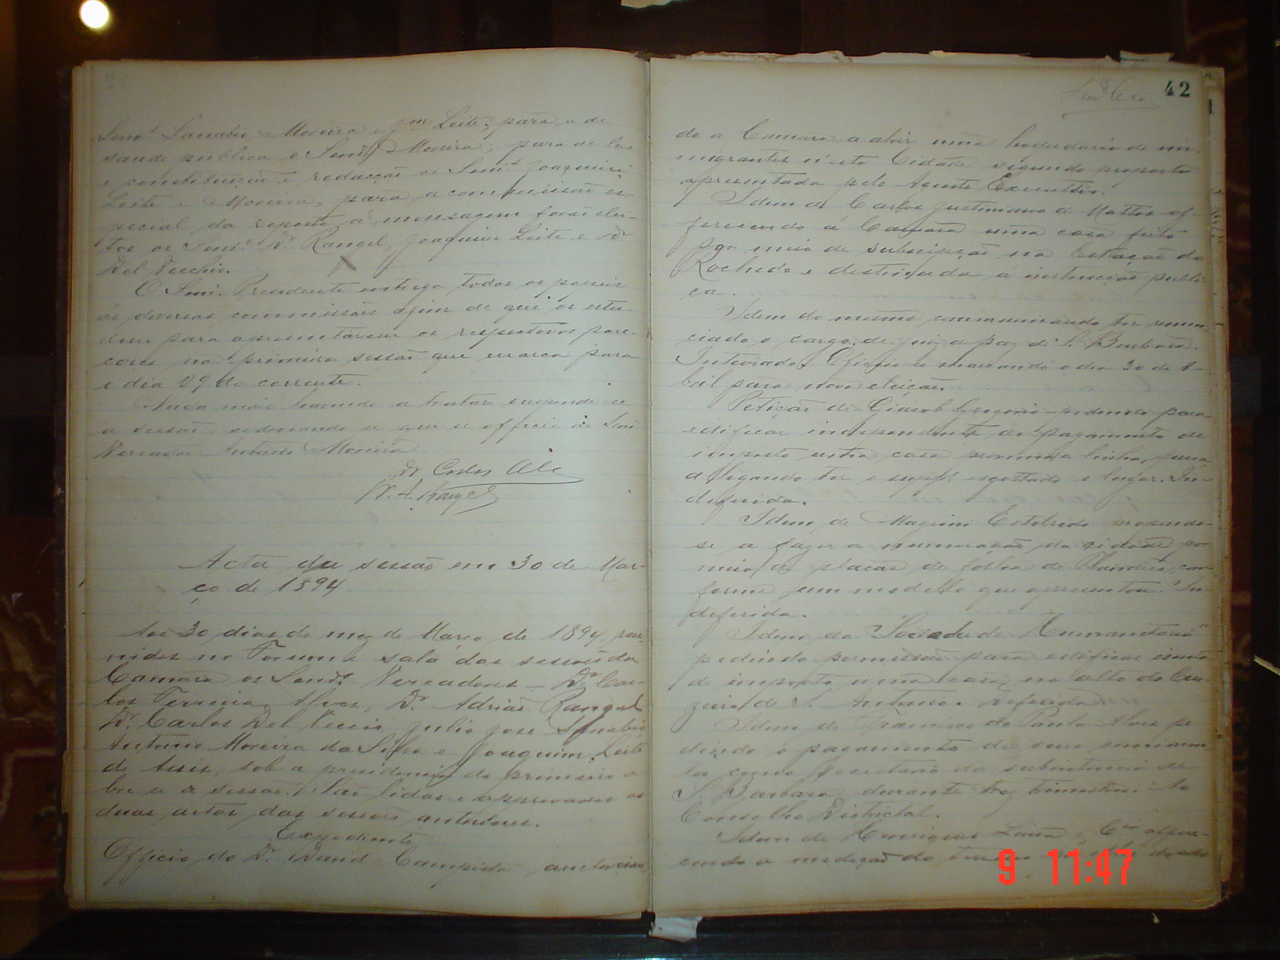 Senrs. Sanabio, Moreira e Jm. Leite; para a de
saude publica o Senr. Moreira; para de leis
e constituição e redacção os Senrs. Joaquim
Leite e Moreira; para a commissão es-
pecial da resposta á mensagem forão elei-
tos os Senrs. Dr. Rangel, Joaquim Leite e Dr.
Del Vecchio.
O Senr. Presidente entrega todos os papeis
ás diversas commissões afim de que os estu-
dem para apresentarem os respectivos pare-
ceres na primeira sessão que marca para
o dia 29 do corrente.
Nada mais havendo a tratar suspende-se
a sessão, ordenando se que se officie ao Snr.
Vereador Antonio Moreira
Dr. Carlos Alz
A. Rangel
Acta da sessão em 30 de Mar-
ço de 1894
Aos 30 dias do mez de Março de 1894, reu-
nidos no Forum e sala das sessões da
Camara os Senrs. Vereadores – Dr. Car-
los Ferreira Alves, Dr. Adrião Rangel
Dr. Carlos Del Veccio, Julio José Sanabio
Antonio Moreira da Silva e Joaquim Leite
de Assis, sob a presidencia do primeiro a-
bre se a sessão. São lidas e approvadas as
duas actas das sessões anteriores.
Expediente
Officio do Dr. David Campista autorisan
42
do a Camara a abrir uma hospedaria de im-
migrantes n'esta Cidade segundo proposta
apresentada pelo Agente Executivo.
Idem de Carlos Justiniano de Mattos of-
ferecendo á Camara uma casa feita
por meio de subscripção na Estação do
Rochedo e destinada á instrucção publi-
ca.
Idem do mesmo, communicando ter renun-
ciado o cargo de juiz de paz de S. Barbara.
Inteirado. Officie se marcando o dia 30 de A-
bril para nova eleição.
Petição de Giacob Gregorio pedindo para
edificar independente do pagamento de
imposto outra casa proxima a linha, 
allegando ter o suppe. esgottado o lugar. In-
deferida.
Idem de Maximi Estolredo propondo-
se a fazer a numeração da cidade por
meio de placas de folha de Flandres con-
forme um modelo que apresentou. In-
deferida.
Idem da Sociedade Humanitaria
pedindo permissão para edificar isenta
de imposto uma casa no alto do Cru-
zeiro de S. Antonio. Deferida
Idem de Francisco de Paula Alves pe-
dindo o pagamento de seus vencimen-
tos como secretario da subintendencia de
S. Barbara, durante tres trimestres. Ao
Conselho Districtal.
Idem de Henriques Lima & Cia. offere-
cendo a medição do
9 11:47